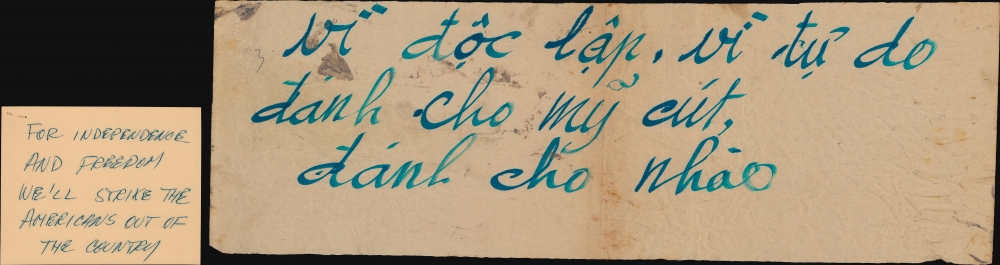 3
vì độc lập, vì tự do
đánh cho mỹ cút,
đánh cho nhào
FOR INDEPENDENCE
AND FREEDOM
WE'LL STRIKE THE
AMERICANS OUT OF
THE COUNTRY